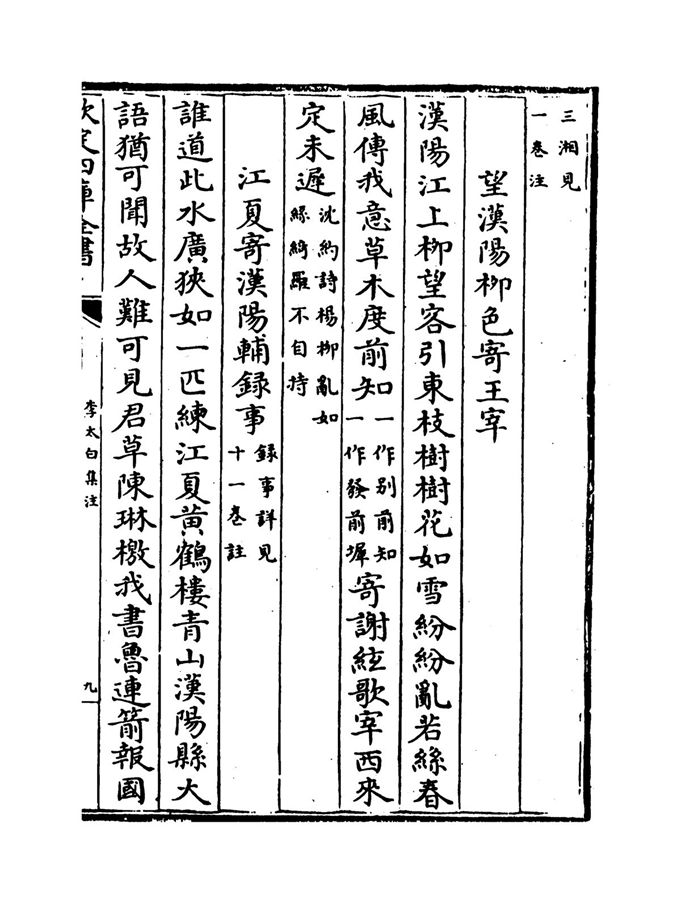 三湘見
一卷注
望漢陽柳色寄王宰
漢陽江上柳望客引東枝樹樹花如雪紛紛亂若絲春
風傳我意草木度前知一作别前知一作發前墀寄謝絃歌宰西來
定未遲沈約詩楊柳亂如絲綺羅不自持
江夏寄漢陽輔録事録事詳見十一卷註
誰道此水廣狹如一匹練江夏黄鶴樓青山漢陽縣大
語猶可聞故人難可見君草陳琳檄我書魯連箭報國
欽定四庫全書
李太白集注
九